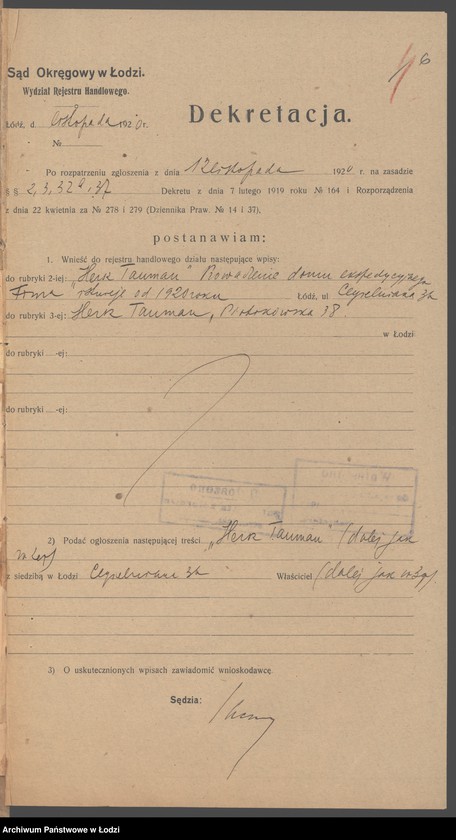 6
Sąd Okręgowy w Łodzi.
Wydział Rejestru Handlowego.
Dekretacja.
Łódź, d. listopada 1920 r.
№
Po rozpatrzeniu zgłoszenia z dnia 12 listopada 1920 r. na zasadzie
§ § 2, 3, 32 a, 37 Dekretu z dnia 7 lutego 1919 roku № 164 i Rozporządzenia
z dnia 22 kwietnia za № 278 i 279 (Dziennika Praw. № 14 i 37),
postanawiam:
1. Wnieść do rejestru handlowego działu następujące wpisy:
do rubryki 2-iej: „Herk Tauman" Prowadzenie domu
Firma od 1920 roku Łódź, ul Cegielniana
do rubryki 3-ej: Herk Tauman, Piotrkowska 38
w Łodzi
do rubryki -ej:
do rubryki -ej:
2) Podać ogłoszenia następującej treści „Herk Tauman" (dalej jak
wżej)
z siedzibą w Łodzi Cegielniana Właściciel (dalej jak wżej).
3) O uskutecznionych wpisach zawiadomić wnioskodawcę.
Sędzia:
Archiwum Państwowe w Łodzi